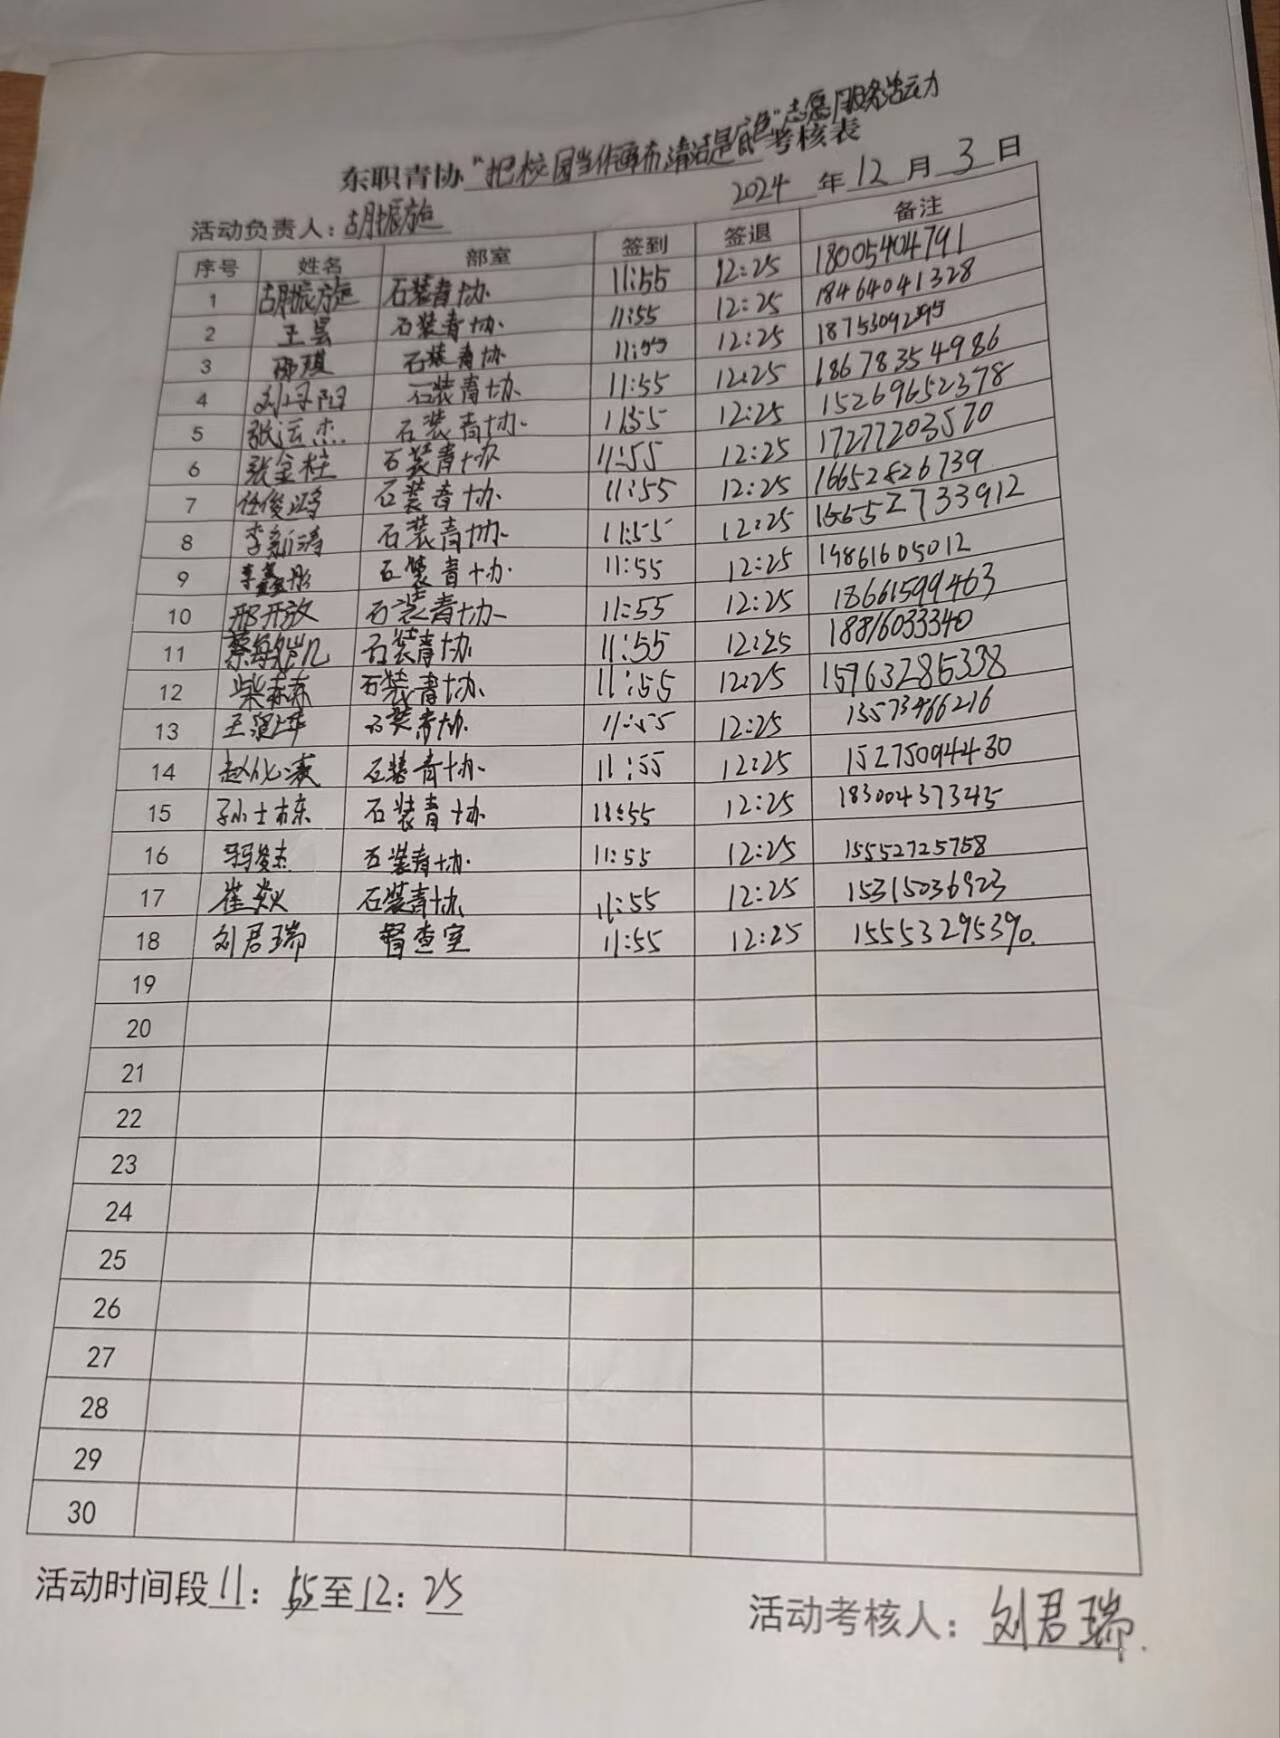 东职青协"把校园当作画布,清洁是底色"志愿服务活动考核表
2024 年 12 月 3 日
活动负责人：胡振旋
序号 姓名 部室 签到 签退 备注
1 胡振旋 石装青协 11:55 12:25 18005404791
2 王昙 石装青协 11:55 12:25 18464041328
3 邢琪 石装青协 11:55 12:25
4 石装青协 11:55 12:25 18678354986
5 张运杰 石装青协 11:55 12:25 15269652378
6 张金柱 石装青协 11:55 12:25 17277203570
7 任俊鸿 石装青协 11:55 12:25 16652826739
8 李新涛 石装青协 11:55 12:25
9 李鑫彤 石装青协 11:55 12:25 19861605012
10 邢开放 石装青协 11:55 12:25 18661599463
11 石装青协 11:55 12:25 18816033340
12 柴森森 石装青协 11:55 12:25 15963285338
13 石装青协 11:55 12:25 13573466216
14 赵化凌 石装青协 11:55 12:25 15275094430
15 孙士栋 石装青协 11:55 12:25 18300437345
16 石装青协 11:55 12:25 15552725758
17 崔焱 石装青协 11:55 12:25 15315036923
18 刘君瑞 督查室 11:55 12:25 15553295390.
19
20
21
22
23
24
25
26
27
28
29
30
活动时间段 11：55 至 12：25
活动考核人：刘君瑞.